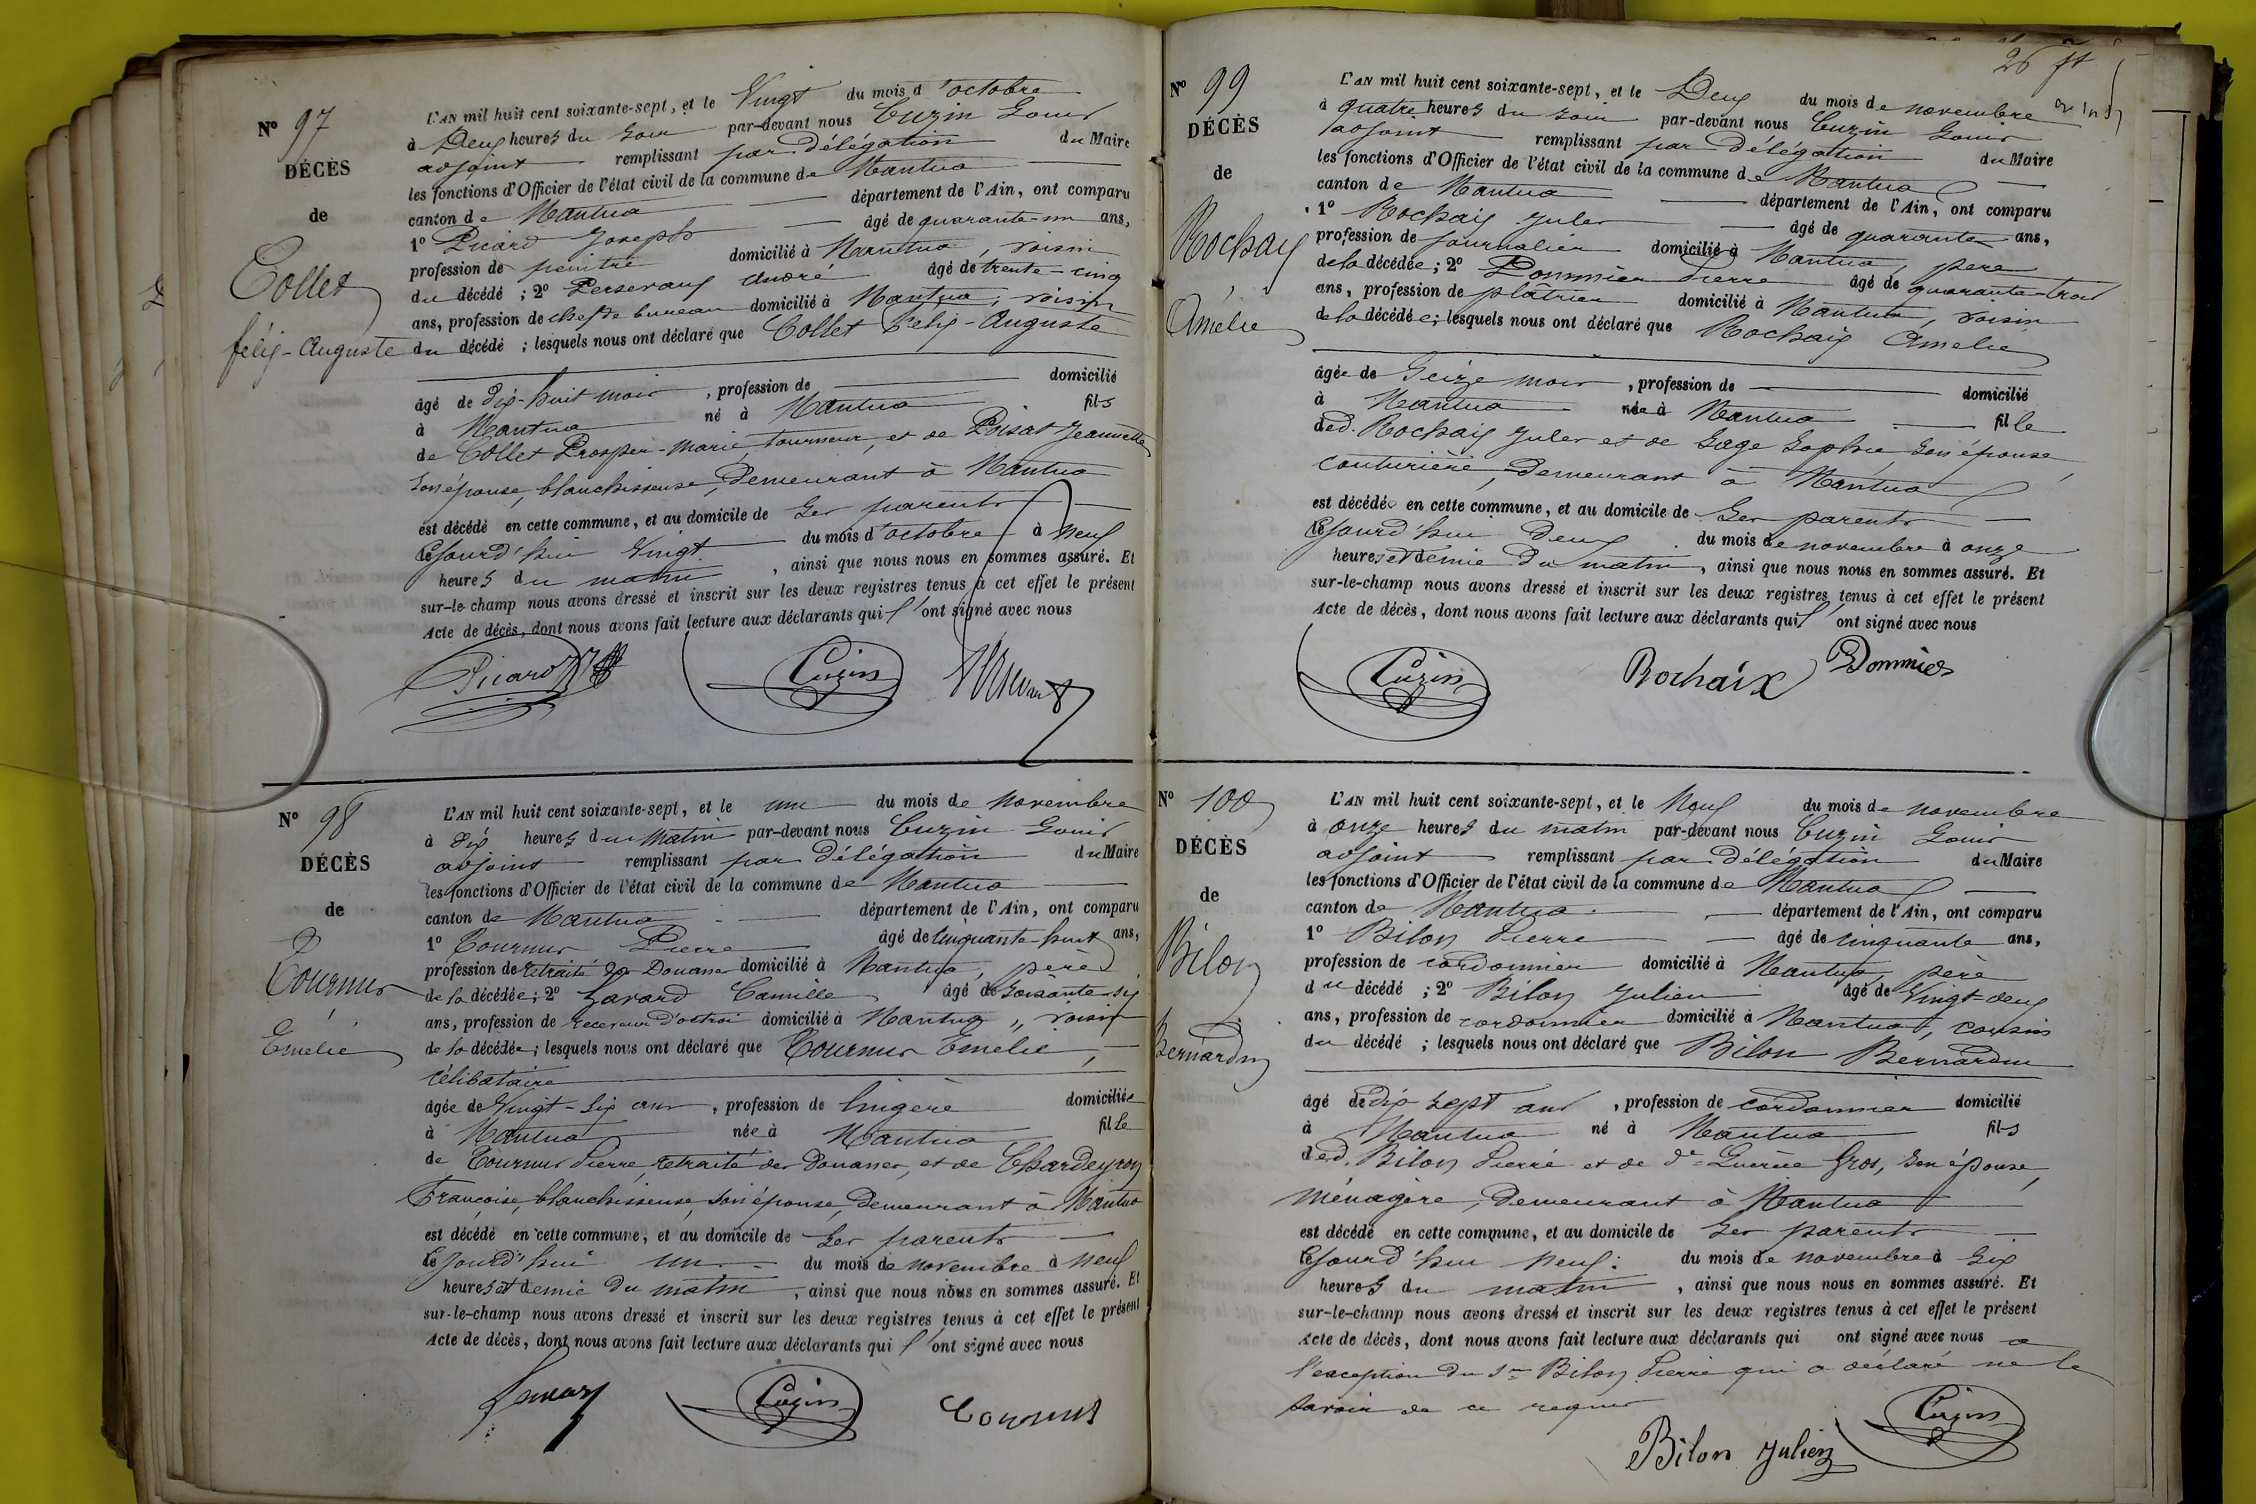 Nº 97
DÉCÈS
de
Collet
félix-Auguste
L'AN mil huit cent soixante-sept, et le Vingt du mois d'octobre
à Deux heures du soir par-devant nous Cuzin Louis
adjoint remplissant par délégation du Maire
les fonctions d'Officier de l'état civil de la commune de Nantua
canton de Nantua département de l'Ain, ont comparu
1º Picard Joseph âgé de quarante-un ans,
profession de peintre domicilié à Nantua, voisin
du décédé ; 2º Perseveaux André âgé de trente-cinq
ans, profession de chef de bureau domicilié à Nantua, voisin
du décédé ; lesquels nous ont déclaré que Collet Félix-Auguste
âgé de dix-huit mois, profession de domicilié
à Nantua né à Nantua fils
de Collet Prosper-Marie, tourneur, et de Poisat Jeannette
son épouse, blanchisseuse, demeurant à Nantua
est décédé en cette commune, et au domicile de ses parents
cejourd'hui Vingt du mois d'octobre à neuf
heures du matin, ainsi que nous nous en sommes assuré. Et
sur-le-champ nous avons dressé et inscrit sur les deux registres tenus à cet effet le présent
Acte de décès, dont nous avons fait lecture aux déclarants qui l'ont signé avec nous
Picard Cuzin
Nº 98
DÉCÈS
de
Tournus
Emélie
L'AN mil huit cent soixante-sept, et le un du mois de novembre
à dix heures du matin par-devant nous Cuzin Louis
adjoint remplissant par délégation du Maire
les fonctions d'Officier de l'état civil de la commune de Nantua
canton de Nantua département de l'Ain, ont comparu
1º Tournus Pierre âgé de cinquante-huit ans,
profession de retraité des Douanes domicilié à Nantua, père
de la décédée ; 2º Camille âgé de soixante-six
ans, profession de receveur d'octroi domicilié à Nantua, voisin
de la décédée ; lesquels nous ont déclaré que Tournus Emelie,
célibataire
âgée de Vingt-six ans, profession de lingère domiciliée
à Nantua née à Nantua fille
de Tournus Pierre, retraité des Douanes, et de Chardeyron
Françoise, blanchisseuse, son épouse, demeurant à Nantua
est décédé en cette commune, et au domicile de ses parents
cejourd'hui un du mois de novembre à neuf
heures et demie du matin, ainsi que nous nous en sommes assuré. Et
sur-le-champ nous avons dressé et inscrit sur les deux registres tenus à cet effet le présent
Acte de décès, dont nous avons fait lecture aux déclarants qui l'ont signé avec nous
Cuzin Tournus
26
Nº 99
DÉCÈS
de
Rochaix
Amélie
L'AN mil huit cent soixante-sept, et le Deux du mois de novembre
à quatre heures du soir par-devant nous Cuzin Louis
adjoint remplissant par Délégation du Maire
les fonctions d'Officier de l'état civil de la commune de Nantua
canton de Nantua département de l'Ain, ont comparu
1º Rochaix Jules âgé de quarante ans,
profession de journalier domicilié à Nantua, père
de la décédée ; 2º Pommier Pierre âgé de quarante-trois
ans, profession de plâtrier domicilié à Nantua, voisin
de la décédée ; lesquels nous ont déclaré que Rochaix Amelie
âgée de Seize mois, profession de domicilié
à Nantua née à Nantua fille
de d. Rochaix Jules et de Sage Sophie, son épouse,
couturière, demeurant à Nantua
est décédée en cette commune, et au domicile de ses parents
cejourd'hui Deux du mois de novembre à onze
heures et demie du matin, ainsi que nous nous en sommes assuré. Et
sur-le-champ nous avons dressé et inscrit sur les deux registres tenus à cet effet le présent
Acte de décès, dont nous avons fait lecture aux déclarants qui l'ont signé avec nous
Cuzin Rochaix Pommier
Nº 100
DÉCÈS
de
Bilon
Bernardin
L'AN mil huit cent soixante-sept, et le Neuf du mois de novembre
à onze heures du matin par-devant nous Cuzin Louis
adjoint remplissant par délégation du Maire
les fonctions d'Officier de l'état civil de la commune de Nantua
canton de Nantua département de l'Ain, ont comparu
1º Bilon Pierre âgé de cinquante ans,
profession de cordonnier domicilié à Nantua, père
du décédé ; 2º Bilon Julien âgé de Vingt-deux
ans, profession de cordonnier domicilié à Nantua, cousin
du décédé ; lesquels nous ont déclaré que Bilon Bernardin
âgé de dix sept ans, profession de cordonnier domicilié
à Nantua né à Nantua fils
de d. Bilon Pierre et de de Gros, son épouse,
ménagère, demeurant à Nantua
est décédé en cette commune, et au domicile de ses parents
cejourd'hui neuf du mois de novembre à six
heures du matin, ainsi que nous nous en sommes assuré. Et
sur-le-champ nous avons dressé et inscrit sur les deux registres tenus à cet effet le présent
Acte de décès, dont nous avons fait lecture aux déclarants qui ont signé avec nous a
l'exception du Sr Bilon Pierre qui a déclaré ne le
savoir de ce requis
Bilon Julien Cuzin